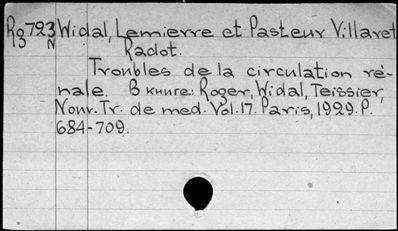 Rg 793 Widal, Lemierre et Pasteur Villaret
N Radot.
Troubles de la circulation ré-
nale. В книге: Roger, Widal, Teissier,
Nouv. Tr. de med. Vol. 17. Paris, 1929. P.
684-709.